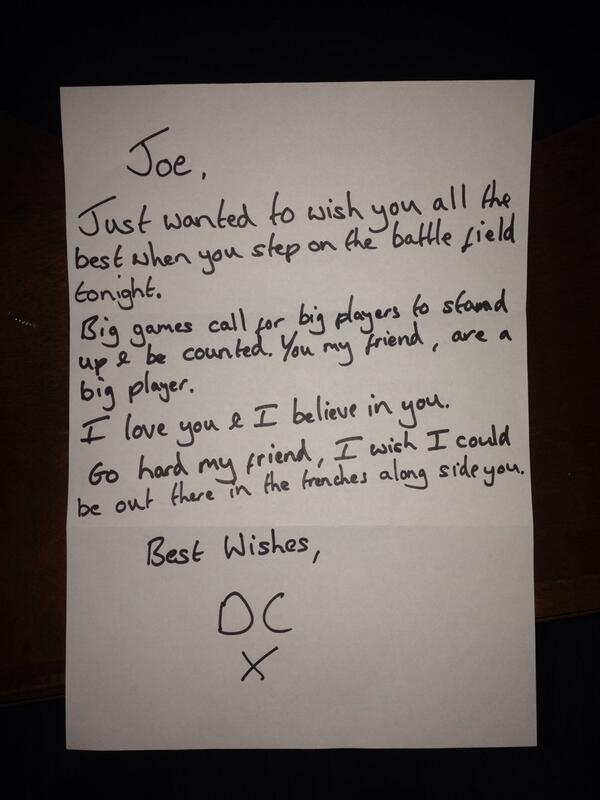 Joe,
Just wanted to wish you all the
best when you step on the battle field
tonight.
Big games call for big players to stand
up & be counted. You my friend, are a
big player.
I love you & I believe in you.
Go hard my friend, I wish I could
be out there in the trenches along side you.
Best Wishes,
DC
X